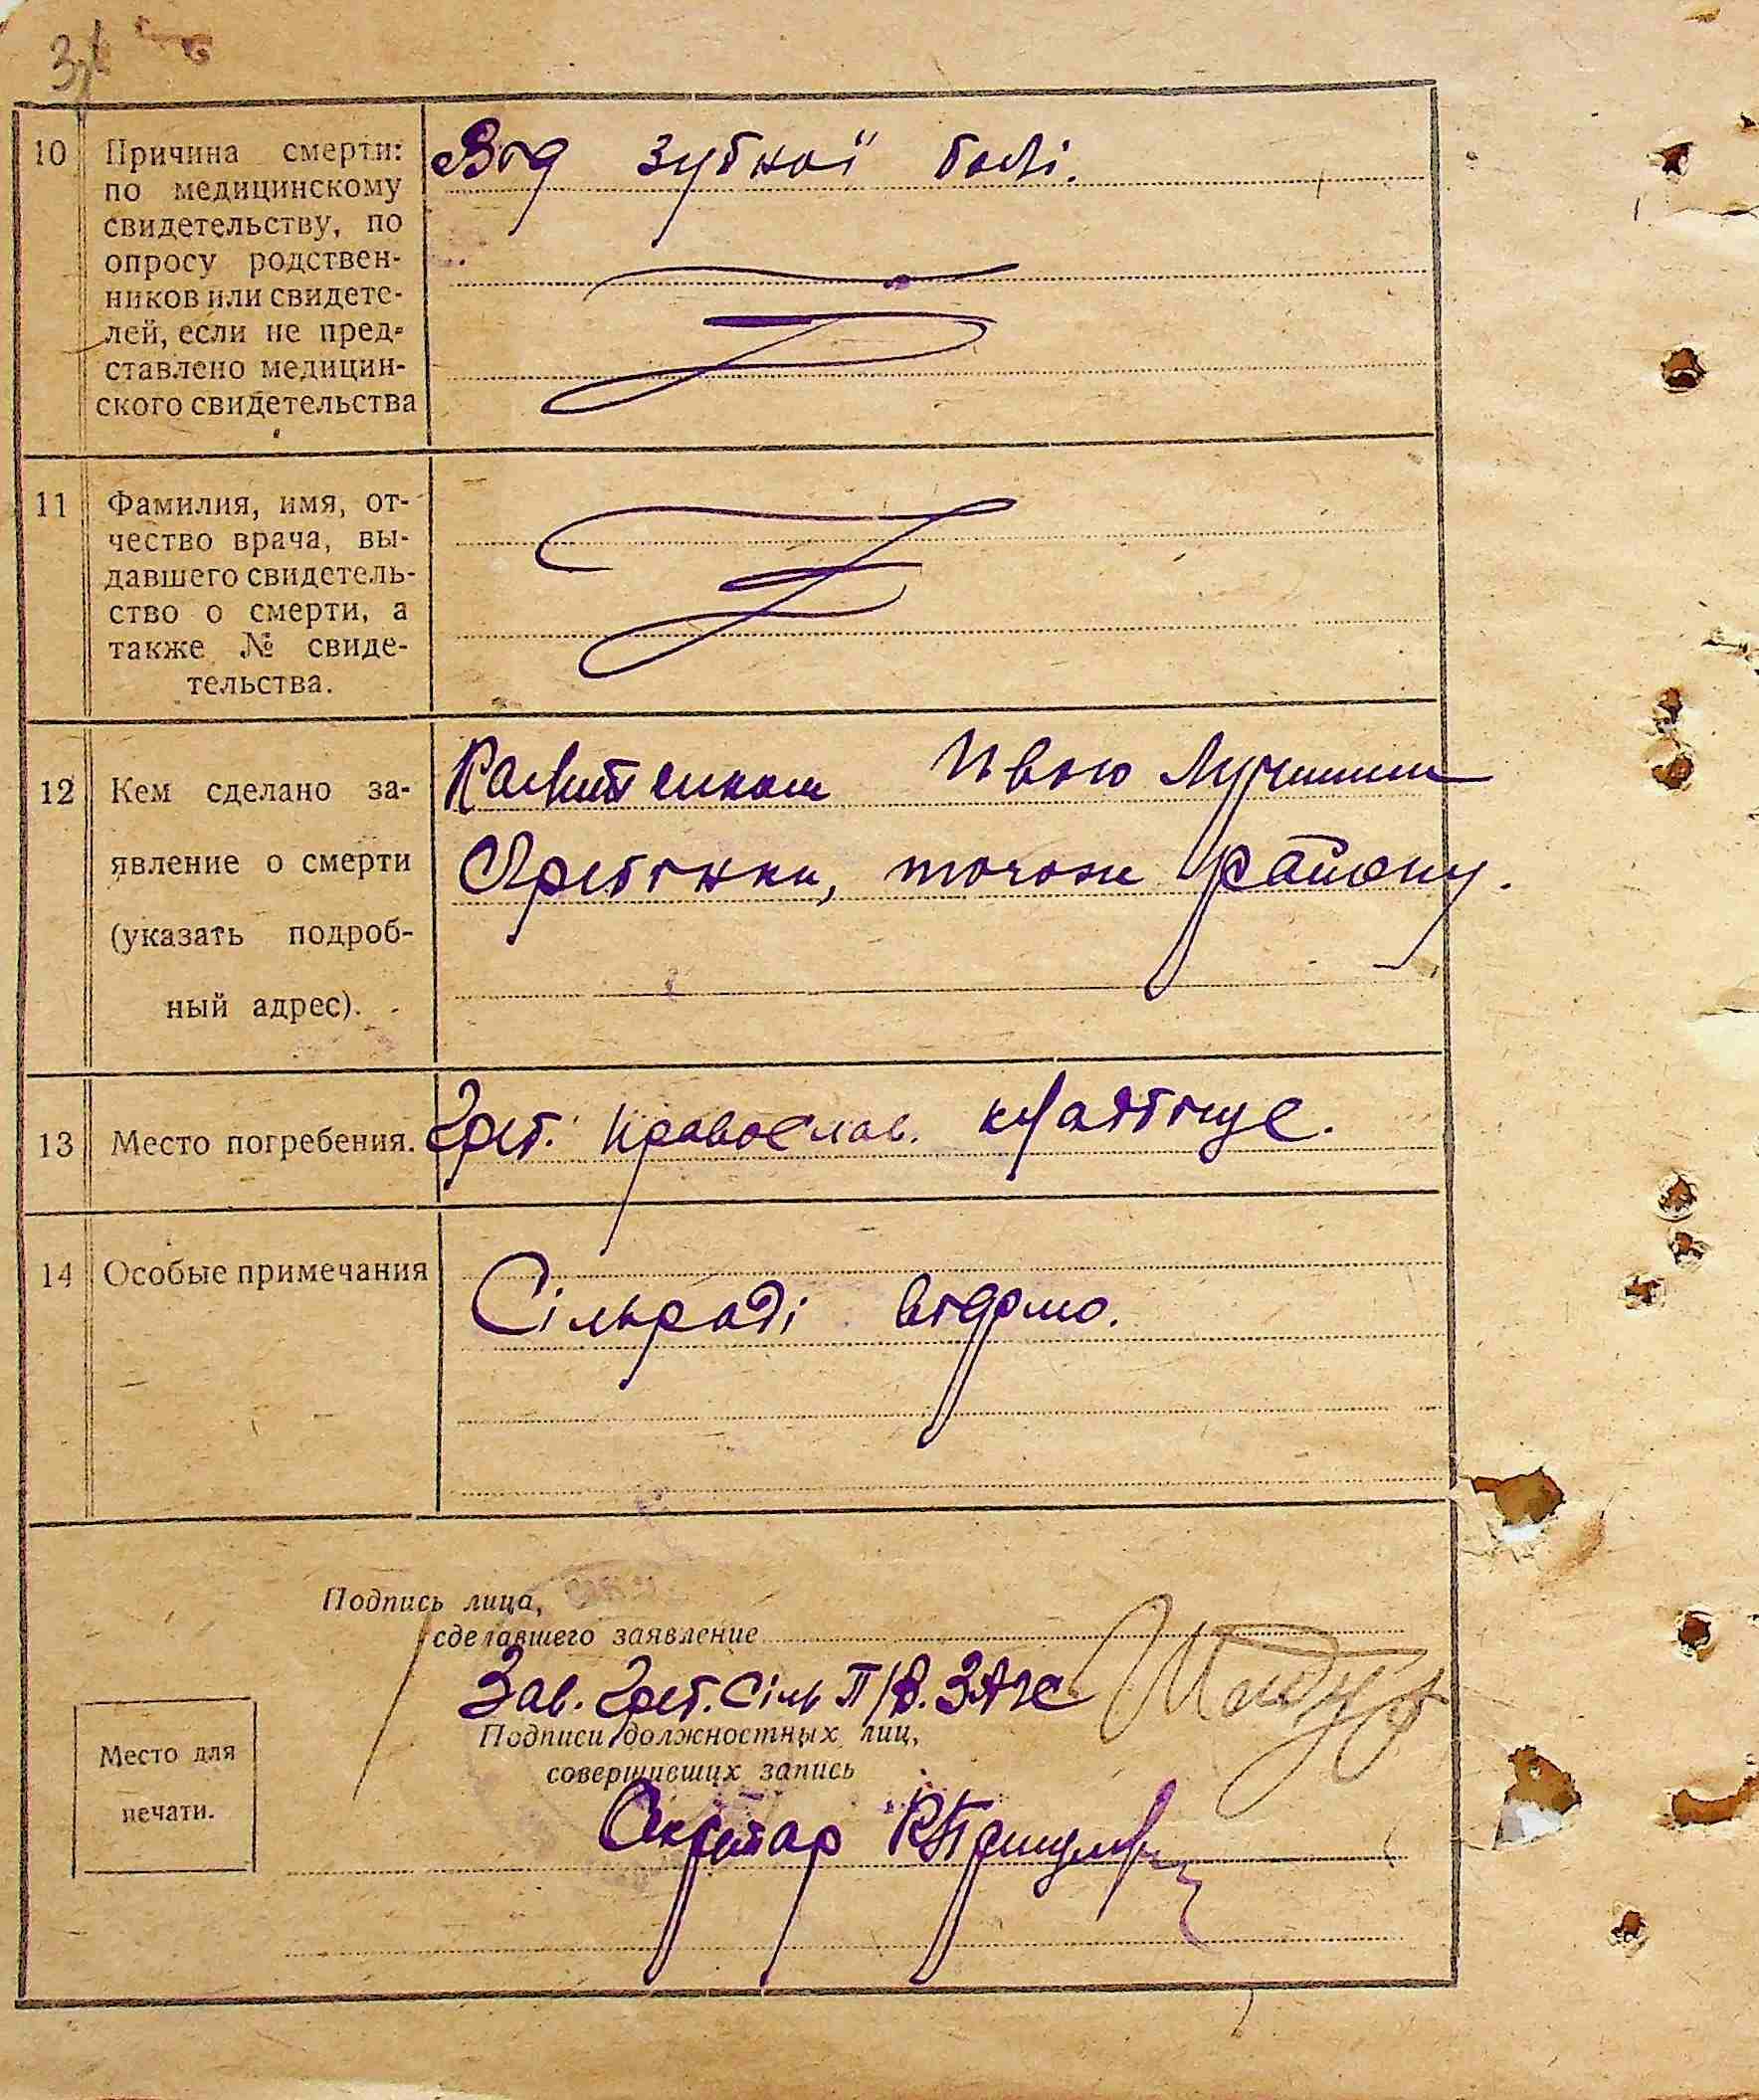 10 Причина смерти:
по медицинскому
свидетельству, по
опросу родствен-
ников или свидете-
лей, если не пред-
ставлено медицин-
ского свидетельства
Вод зубної болі.
11 Фамилия, имя, от-
чество врача, вы-
давшего свидетель-
ство о смерти, а
также № свиде-
тельства.
12 Кем сделано за-
явление о смерти
(указать подроб-
ный адрес).
района.
13 Место погребения.
Греб. православ. кладбище.
14 Особые примечания
Сільраді відомо.
Подпись лица,
сделавшего заявление
Зав. Греб. Сіль П/В. ЗАГС
Подписи должностных лиц,
совершивших запись
Секретар
Место для
печати.